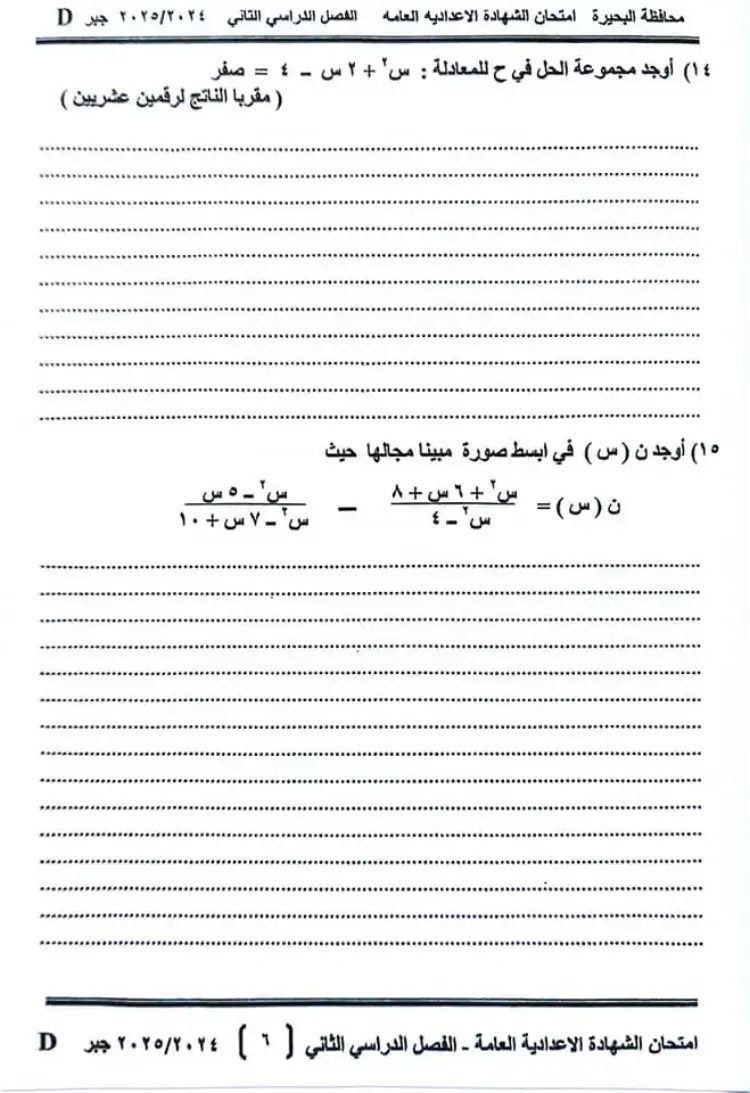 محافظة البحيرة امتحان الشهادة الاعداديه العامه الفصل الدراسي الثاني ٢٠٢٥/٢٠٢٤ جبر D
١٤) أوجد مجموعة الحل في ح للمعادلة : س٢ + ٢ س – ٤ = صفر
( مقربا الناتج لرقمين عشريين )
١٥) أوجد ن ( س ) في ابسط صورة مبينا مجالها حيث
ن ( س ) = س٢ + ٦ س + ٨ / س٢ – ٤ – س٢ – ٥ س / س٢ – ٧ س + ١٠
امتحان الشهادة الاعدادية العامة – الفصل الدراسي الثاني ( ٦ ) ٢٠٢٥/٢٠٢٤ جبر D